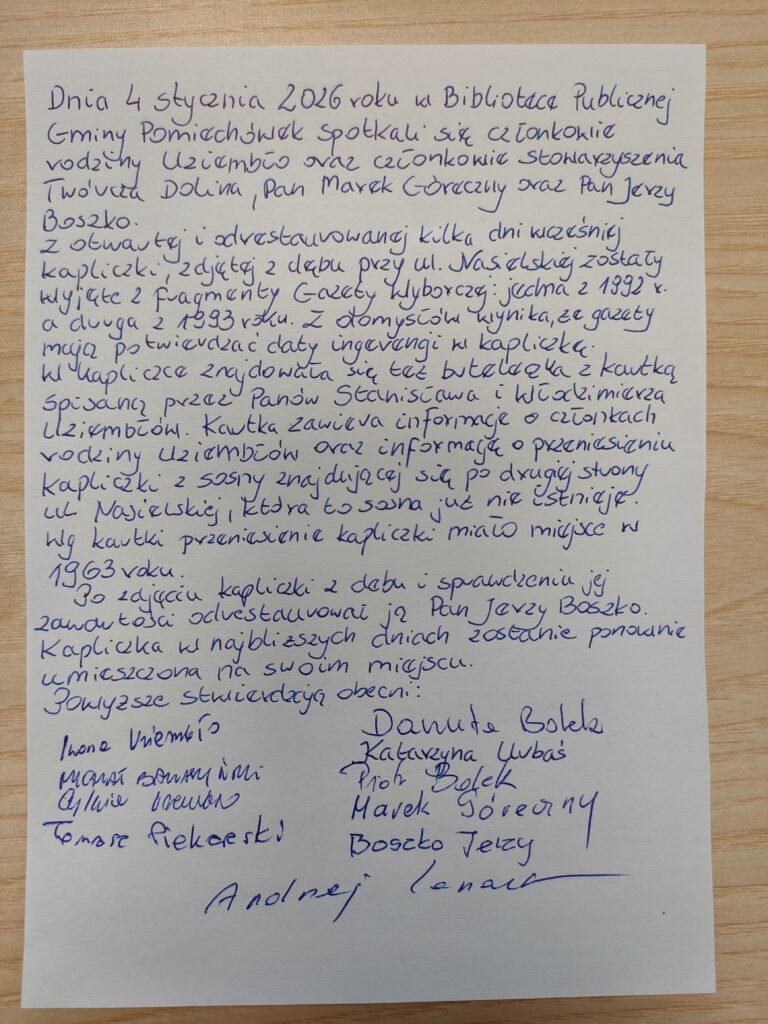 Dnia 4 stycznia 2026 roku w Bibliotece Publicznej
Gminy Pomiechówek spotkali się członkowie
rodziny Uziembło oraz członkowie stowarzyszenia
Twórcza Dolina, Pan Marek Góreczny oraz Pan Jerzy
Boszko.
Z otwartej i odrestaurowanej kilka dni wcześniej
kapliczki, zdjętej z dębu przy ul. Nasielskiej zostały
wyjęte 2 fragmenty Gazety Wyborczej: jedna z 1992 r.
a druga z 1993 roku. Z domysłów wynika, że gazety
mają potwierdzać daty ingerencji w kapliczkę.
W kapliczce znajdowała się też buteleczka z kartką
spisaną przez Panów Stanisława i Włodzimierza
Uziembłów. Kartka zawiera informacje o członkach
rodziny Uziembłów oraz informację o przeniesieniu
kapliczki z sosny znajdującej się po drugiej strony
ul Nasielskiej, która to sosna już nie istnieje.
Wg kartki przeniesienie kapliczki miało miejsce w
1963 roku.
Po zdjęciu kapliczki z dębu i sprawdzeniu jej
zawartości odrestaurował ją Pan Jerzy Boszko.
Kapliczka w najbliższych dniach zostanie ponownie
umieszczona na swoim miejscu.
Powyższe stwierdzają obecni:
Iwona Uziembło
Danuta Bolek
Katarzyna Urbaś
Piotr Bolek
Marek Góreczny
Tomasz Piekarski
Boszko Jerzy
Andrzej